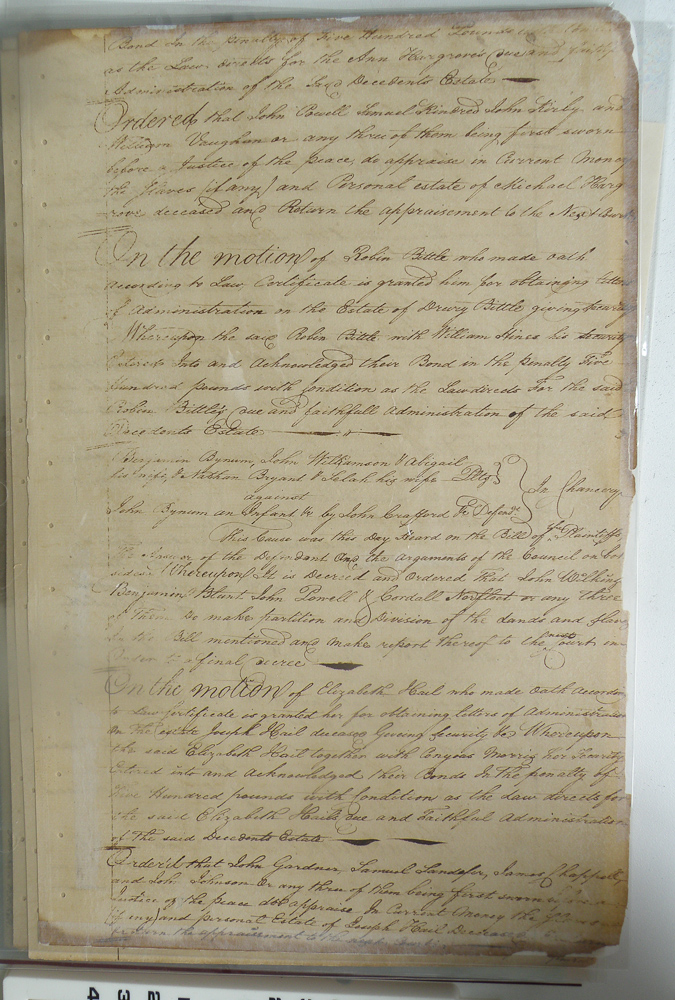 Bond In the penalty of Five Hundred Pounds
as the Law directs for the Ann Hargroves due and
Administration of the Said Decedents Estate
Ordered that John Powell Lemuel Kindred John Kirby and
William Vaughan or any three of them being first sworn
before a Justice of the peace, do appraise in Current Money
the Slaves (if any) and Personal estate of Michael Harg
rove deceased and Return the appraisement to the Next Court
On the motion of Robin Bittle who made oath
according to Law, Certificate is granted him for obtaining letters
of Administration on the Estate of Drewry Bittle giving Security
Whereupon the said Robin Bittle with William Hines his security
Entered Into and Acknowledged their Bond in the Penalty Five
hundred pounds with Condition as the Law directs For the said
Robin Bittle's due and faithfull Administration of the said
Decedents Estate
Benjamin Bynum, John Williamson & Abigail
his wife, & Nathan Bryant & Selah his wife Pltfs
In Chancery
against
John Bynum an Infant &c by John Crafford &c Defendt
This Cause was this Day Heard on the Bill of ye Plaintiffs
The Answer of the Defendant And the arguments of the Council on both
sides. Whereupon It is Decreed and Ordered That John Wilkins
Benjamin Blunt John Powell & Cordall Norfleet or any three
of them do make partition and Division of the Lands and Slaves
In the Bill mentioned and make report thereof to the next Court in
Order to a final decree
On the motion of Elizabeth Hail who made Oath According
to Law Certificate is granted her for obtaining letters of Administration
on the estate Joseph Hail deceased Giveing Security &c Whereupon
the said Elizabeth Hail together with Conyous Morris her Security
Entered into and Acknowledged their Bonds In the penalty of
Five Hundred pounds with Condition as the Law directs for
the said Elizabeth Hails due and Faithful Administration
of The said Decedents Estate
Ordered that John Gardner, Samuel Sandefor, James Chappell
and Joh Johnson Or any three of them being first sworn
Justice of the peace do appraise In Current Money the Slaves
(if any) and personal Estate of Joseph Hail Deceased
Return the appraisement to the next